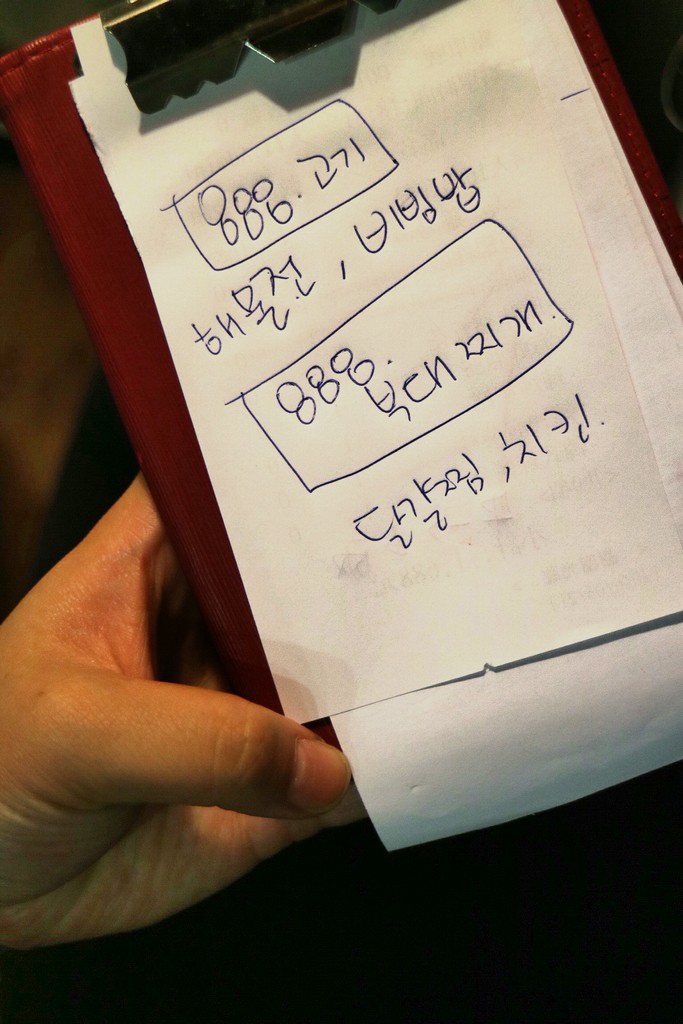 888. 고기
해물전, 비빔밥
888.
부대찌개.
계란찜, 치킨.